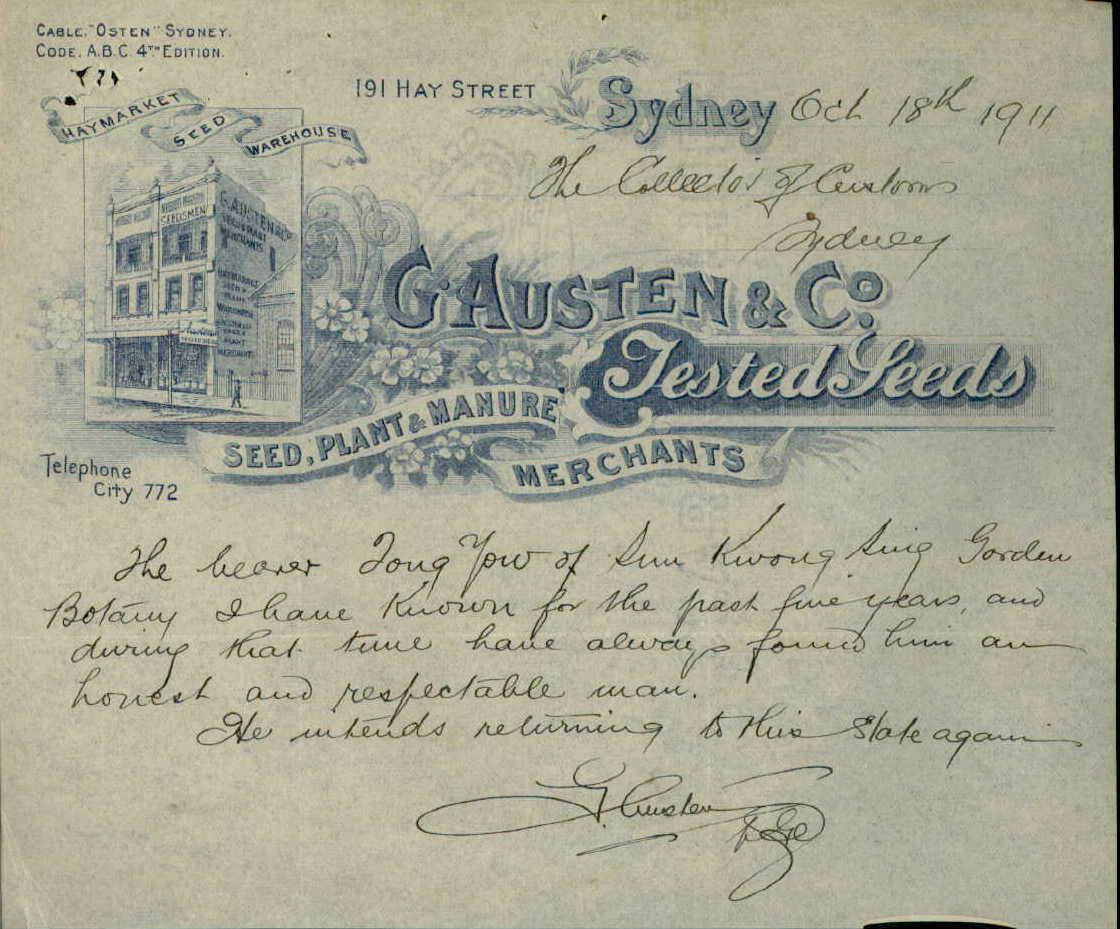 CABLE, "OSTEN" SYDNEY.
CODE, A.B.C. 4TH EDITION.
191 HAY STREET
Sydney Oct 18th 1911
HAYMARKET SEED WAREHOUSE
The Collector of Customs
Sydney
SEEDSMEN
G. AUSTEN & Co
MERCHANTS
G. AUSTEN & Co.
Tested Seeds
SEED, PLANT & MANURE
MERCHANTS
Telephone
City 772
The bearer Tong Yow of Sun Kwong Sing Garden
Botany I have Known for the past five years, and
during that time have always found him an
honest and respectable man.
He intends returning to this State again
G. Austen
& Co